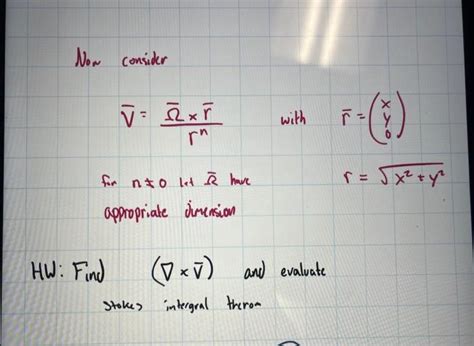 Now consider
V̄ = Ω̄ × r̄ / rⁿ with r̄ = (x y 0)
for n ≠ 0 let Ω̄ have r = √x² + y²
appropriate dimension
HW: Find (∇ × V̄) and evaluate
Stokes intergral therom